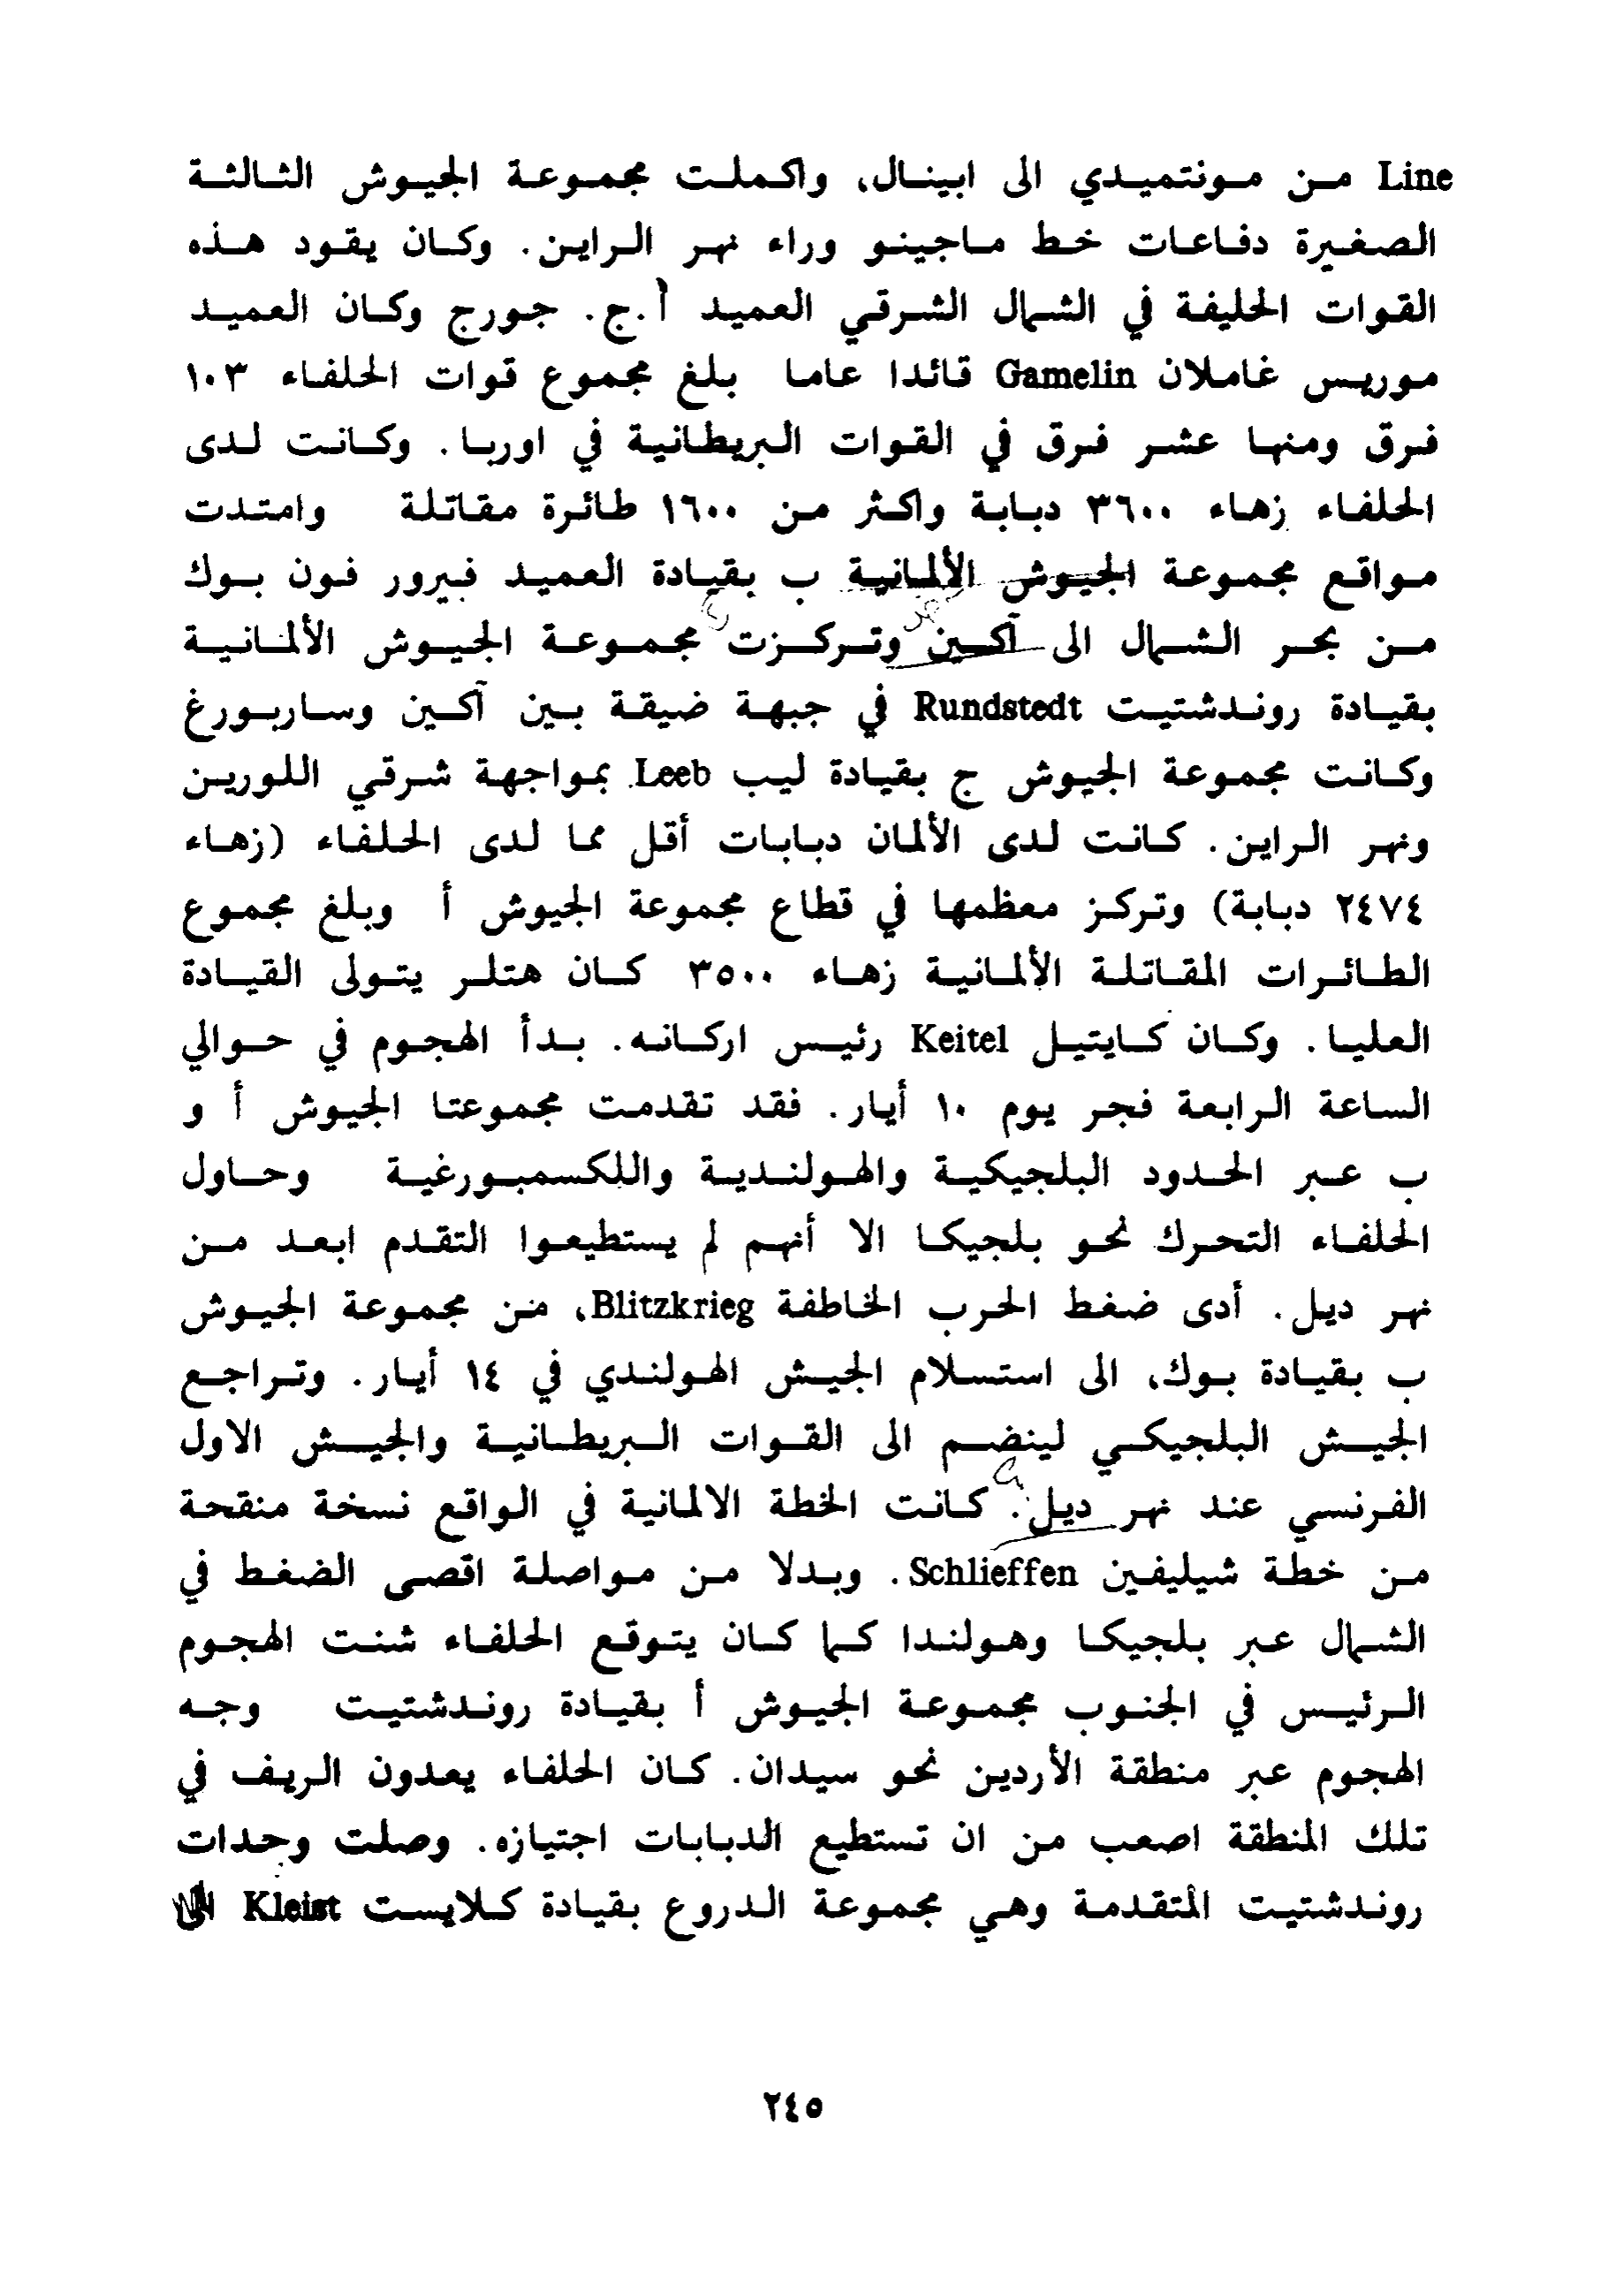 Line من مونتميدي الى ابينال، واكملت مجموعة الجيوش الثالثة
الصغيرة دفاعات خط ماجينو وراء نهر الراين. وكان يقود هذه
القوات الحليفة في الشمال الشرقي العميد أ.ج. جورج وكان العميد
موريس غاملان Gamelin قائدا عاما بلغ مجموع قوات الحلفاء ١٠٣
فرق ومنها عشر فرق في القوات البريطانية في اوربا. وكانت لدى
الحلفاء زهاء ٣٦٠٠ دبابة واكثر من ١٦٠٠ طائرة مقاتلة وامتدت
مواقع مجموعة الجيوش الألمانية ب بقيادة العميد فيرور فون بوك
من بحر الشمال الى آكين وتركزت مجموعة الجيوش الألمانية
بقيادة روندشتيت Rundstedt في جبهة ضيقة بين آكين وساربورغ
وكانت مجموعة الجيوش ج بقيادة ليب Leeb بمواجهة شرقي اللورين
ونهر الراين. كانت لدى الألمان دبابات أقل مما لدى الحلفاء (زهاء
٢٤٧٤ دبابة) وتركز معظمها في قطاع مجموعة الجيوش أ وبلغ مجموع
الطائرات المقاتلة الألمانية زهاء ٣٥٠٠ كان هتلر يتولى القيادة
العليا. وكان كايتيل Keitel رئيس اركانه. بدأ الهجوم في حوالي
الساعة الرابعة فجر يوم ١٠ أيار. فقد تقدمت مجموعتا الجيوش أ و
ب عبر الحدود البلجيكية والهولندية واللكسمبورغية وحاول
الحلفاء التحرك نحو بلجيكا الا أنهم لم يستطيعوا التقدم ابعد من
نهر ديل. أدى ضغط الحرب الخاطفة Blitzkrieg، من مجموعة الجيوش
ب بقيادة بوك، الى استسلام الجيش الهولندي في ١٤ أيار. وتراجع
الجيش البلجيكي لينضم الى القوات البريطانية والجيش الاول
الفرنسي عند نهر ديل. كانت الخطة الالمانية في الواقع نسخة منقحة
من خطة شيليفين Schlieffen. وبدلا من مواصلة اقصى الضغط في
الشمال عبر بلجيكا وهولندا كما كان يتوقع الحلفاء شنت الهجوم
الرئيس في الجنوب مجموعة الجيوش أ بقيادة روندشتيت وجه
الهجوم عبر منطقة الأردين نحو سيدان. كان الحلفاء يعدون الريف في
تلك المنطقة اصعب من ان تستطيع الدبابات اجتيازه. وصلت وحدات
روندشتيت المتقدمة وهي مجموعة الدروع بقيادة كلايست Kleist الى
٢٤٥